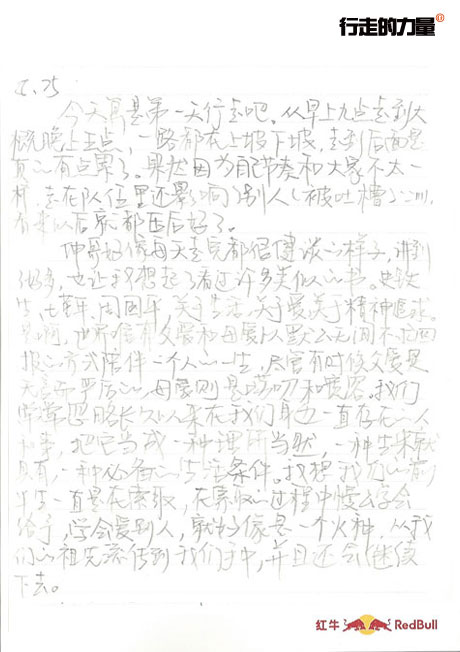 行走的力量®
5.25
今天算是第一天行走吧。从早上九点走到大
概晚上五点，一路都在上坡下坡，走到后面是
真心有点累了。果然因为自己节奏和大家不太一
样，走在队伍里还影响了别人（被吐槽
看来以后就都压后好了。
仲哥好像每天走完都很健谈的样子，讲到
很多，也让我想起了看过许多类似的书。史铁
生、七堇年、周国平，关于生活、关于爱关于精神追求。
是啊，世界唯有父爱和母爱以默默无闻不求回
报的方式陪伴一个人的一生，尽管有时候父爱是
无言而严厉的，母爱则是唠叨和宽容。我们
常常忽略长久以来在我们身边一直存在的人
和事，把它当成一种理所当然，一种生来就
具有，一种必备的生活条件。我想我们的前
半生一直是在索取，在索取的过程中慢慢学会
给予，学会爱别人，就好像是一个火种，从我
们的祖先流传到我们手中，并且还会继续
下去。
红牛 RedBull